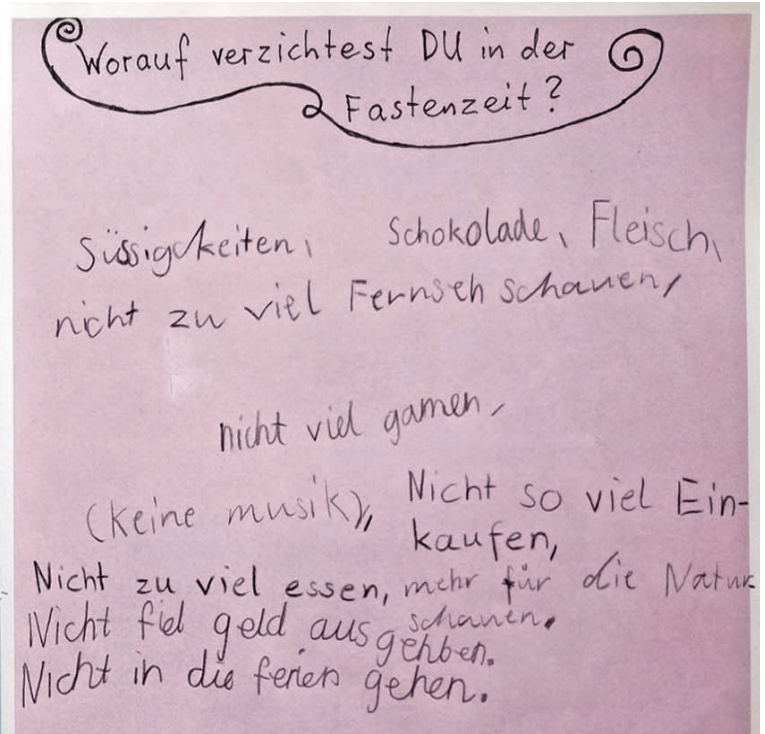 Worauf verzichtest DU in der
Fastenzeit?
Süssigkeiten, Schokolade, Fleisch,
nicht zu viel Fernseh schauen,
nicht viel gamen,
(keine musik), Nicht so viel Ein-
kaufen,
Nicht zu viel essen, mehr für die Natur
schauen.
Nicht fiel geld aus gehben.
Nicht in die ferien gehen.